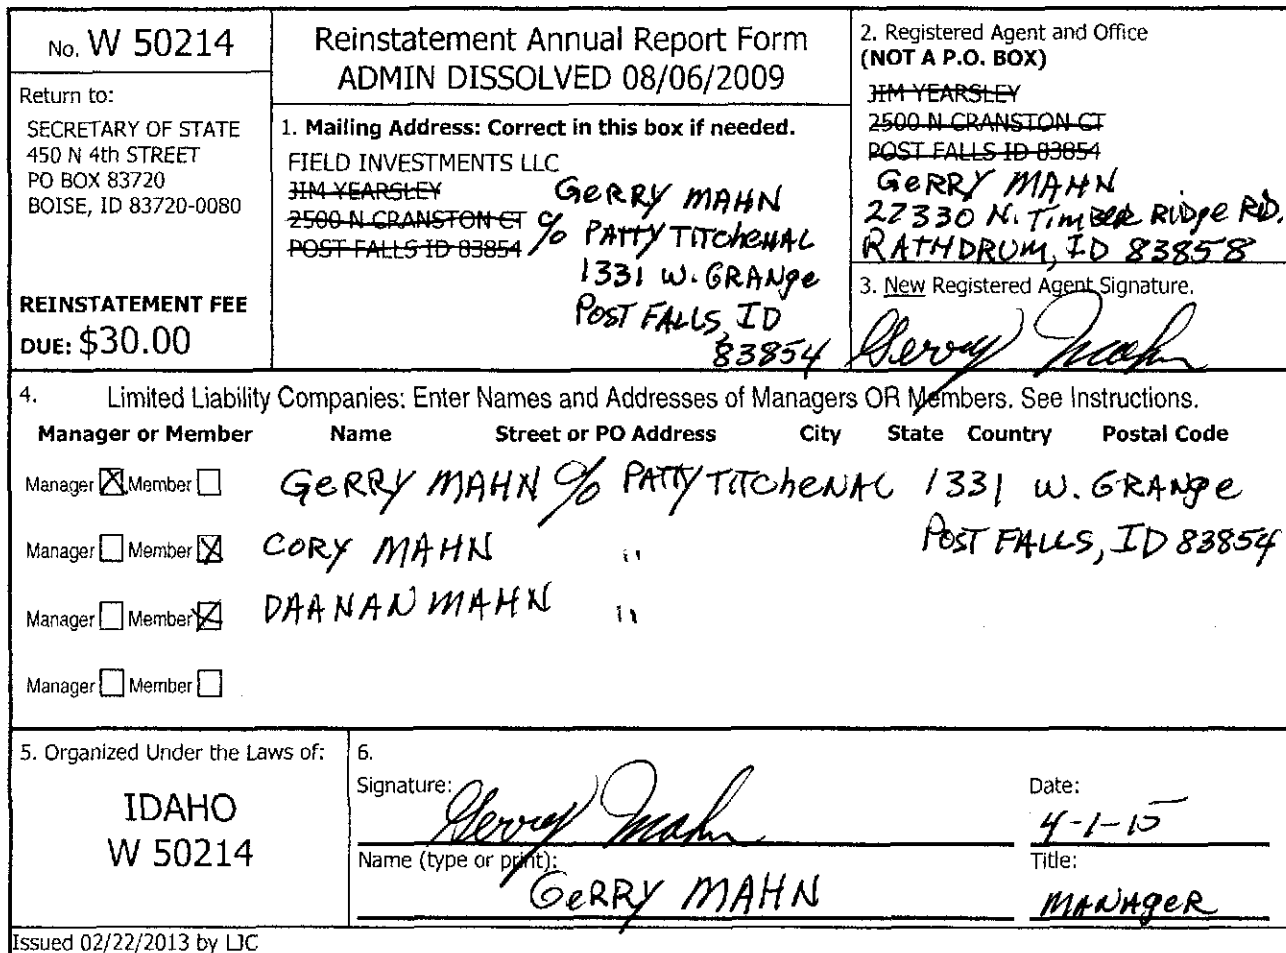 No. W 50214
Return to:
SECRETARY OF STATE
450 N 4th STREET
PO BOX 83720
BOISE, ID 83720-0080
REINSTATEMENT FEE
DUE: $30.00
Reinstatement Annual Report Form
ADMIN DISSOLVED 08/06/2009
1. Mailing Address: Correct in this box if needed.
FIELD INVESTMENTS LLC
JIM YEARSLEY
2500 N CRANSTON CT
POST FALLS ID 83854
GERRY MAHN
c/o PATTY TITCHENAL
1331 W. GRANGE
POST FALLS, ID
83854
2. Registered Agent and Office
(NOT A P.O. BOX)
JIM YEARSLEY
2500 N CRANSTON CT
POST FALLS ID 83854
GERRY MAHN
22330 N. TIMBER RIDGE RD.
RATHDRUM, ID 83858
3. New Registered Agent Signature.
Gerry Mahn
4. Limited Liability Companies: Enter Names and Addresses of Managers OR Members. See Instructions.
Manager or Member Name Street or PO Address City State Country Postal Code
Manager Member GERRY MAHN c/o PATTY TITCHENAL 1331 W. GRANGE
POST FALLS, ID 83854
Manager Member CORY MAHN "
Manager Member DAANAN MAHN "
Manager Member
5. Organized Under the Laws of:
IDAHO
W 50214
6.
Signature: Gerry Mahn
Date: 4-1-15
Name (type or print): GERRY MAHN
Title: MANAGER
Issued 02/22/2013 by LJC